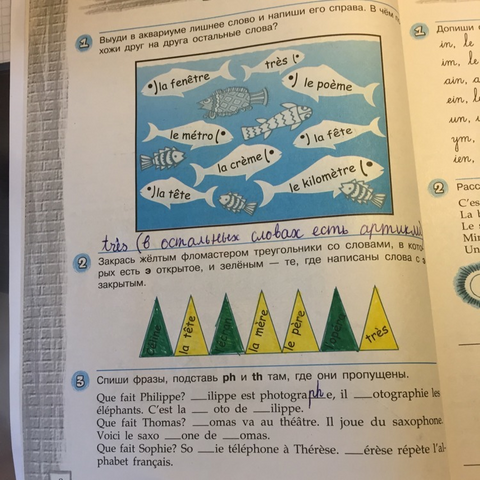 1 Выуди в аквариуме лишнее слово и напиши его справа. В чём
хожи друг на друга остальные слова?
la fenêtre
très
le poème
le métro
la fête
la crème
la tête
le kilomètre
très (в остальных словах есть артикли
2 Закрась жёлтым фломастером треугольники со словами, в кото-
рых есть э открытое, и зелёным — те, где написаны слова с э
закрытым.
la tête
la mère
le père
très
3 Спиши фразы, подставь ph и th там, где они пропущены.
Que fait Philippe? __ilippe est photographe, il __otographie les
éléphants. C'est la __oto de __ilippe.
Que fait Thomas? __omas va au théâtre. Il joue du saxophone.
Voici le saxo__one de __omas.
Que fait Sophie? So__ie téléphone à Thérèse. __érèse répète l'al-
phabet français.
1 Допиши
in, le
im, le
ain,
ein, l
un,
ym,
ien,
2 Расс
C'es
La
Le
Mir
Un